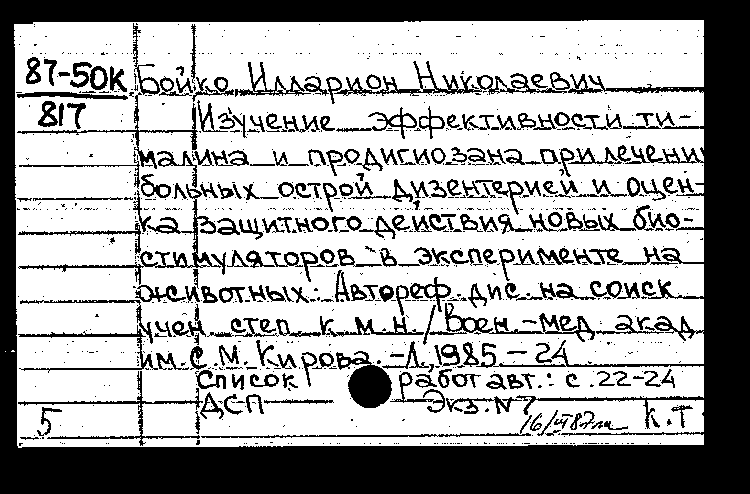 87-50К Бойко Илларион Николаевич
817 Изучение эффективности ти-
малина и продигиозана при лечении
больных острой дизентерией и оцен-
ка защитного действия новых био-
стимуляторов в эксперименте на
животных: Автореф. дис. на соиск
учен. степ. к.м.н./Воен.-мед. акад
им. С.М. Кирова. -Л., 1985. - 24
Список работ авт.: с. 22-24
ДСП Экз. N 7
5 К.Т